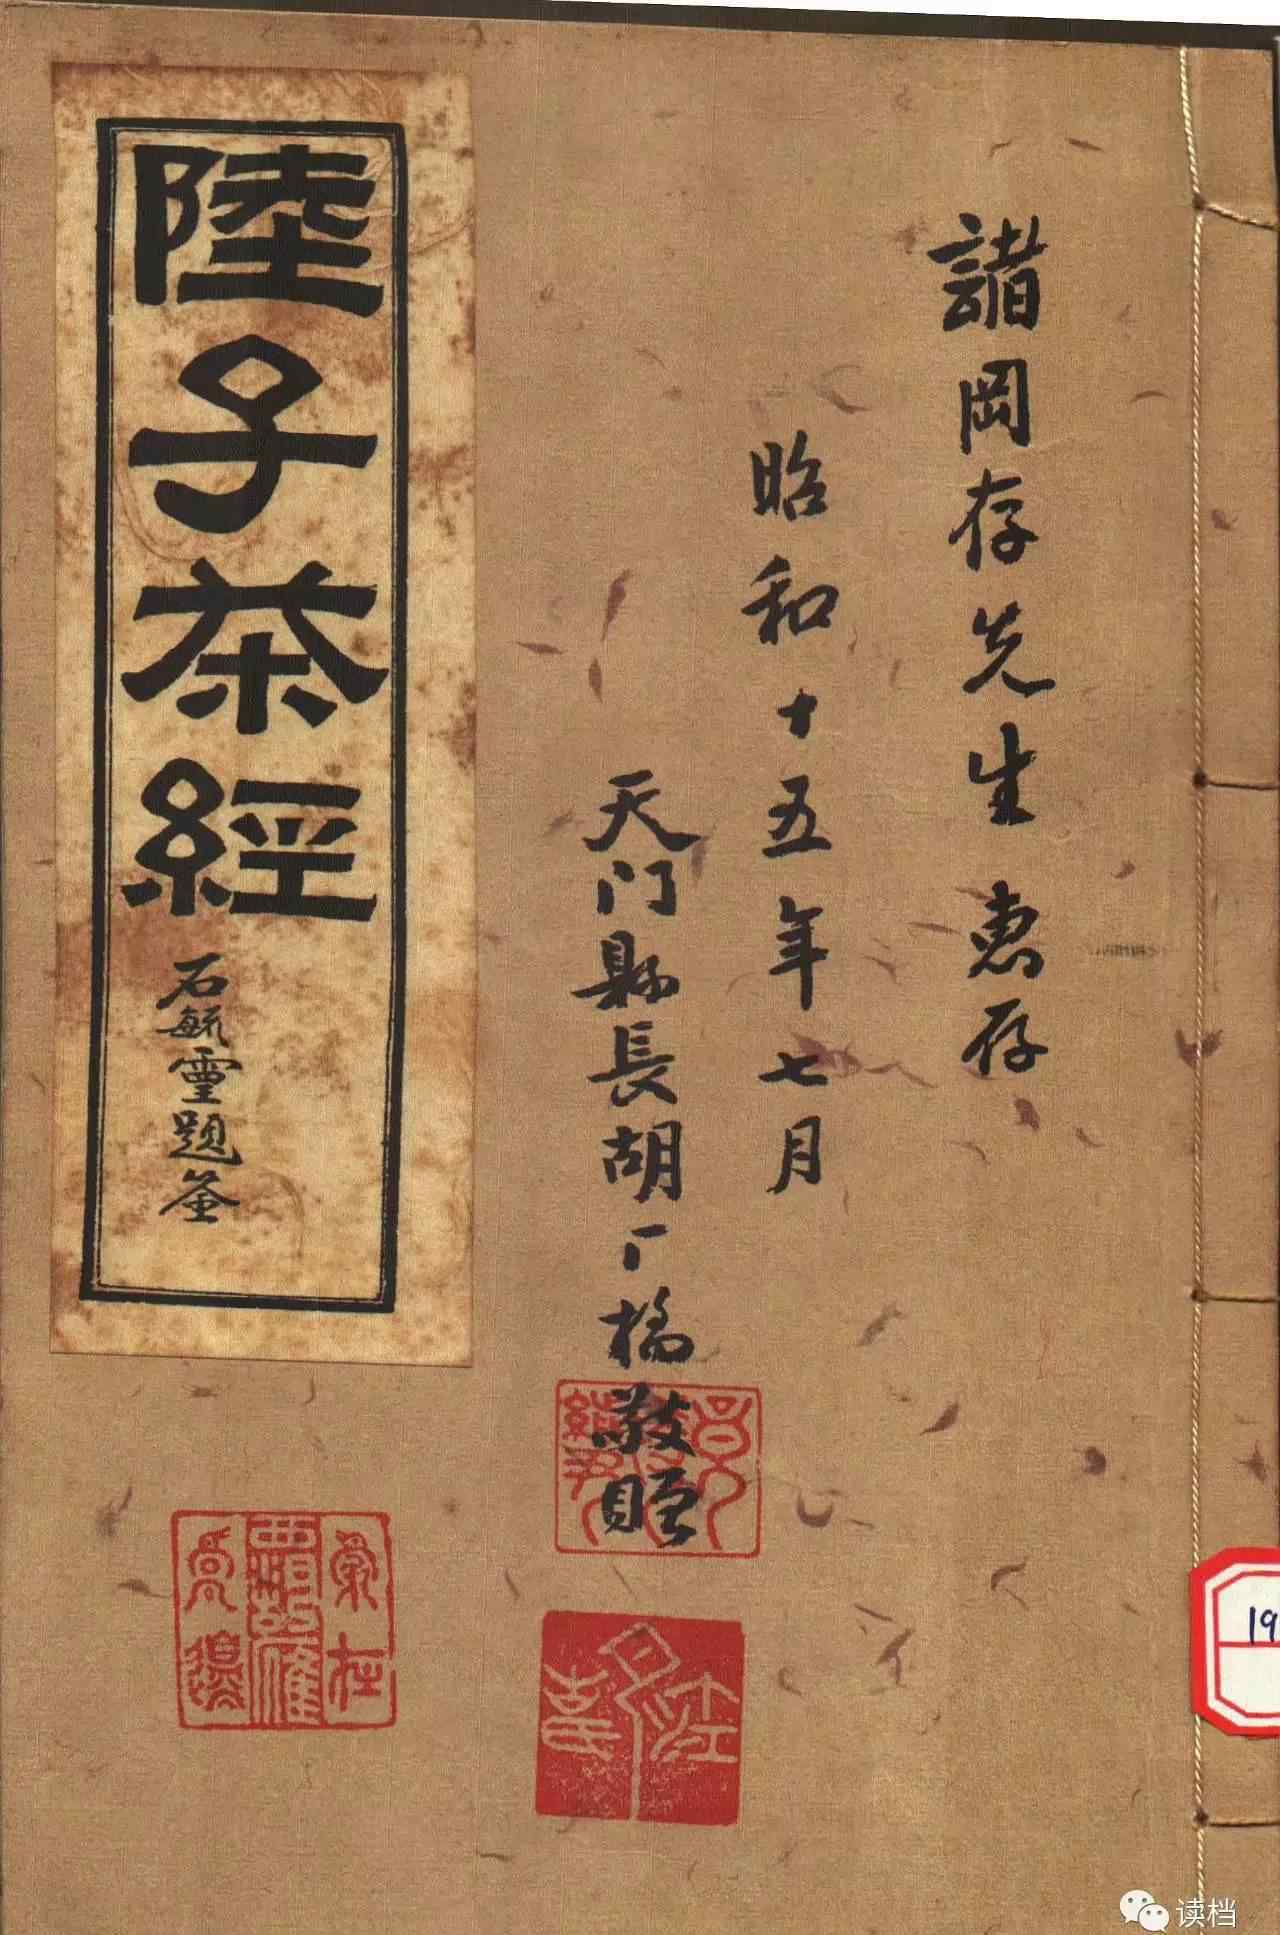 諸岡存先生惠存
昭和十五年七月
天门縣長胡厂橋敬贈
陸子茶經
石毓靈題
19
读档